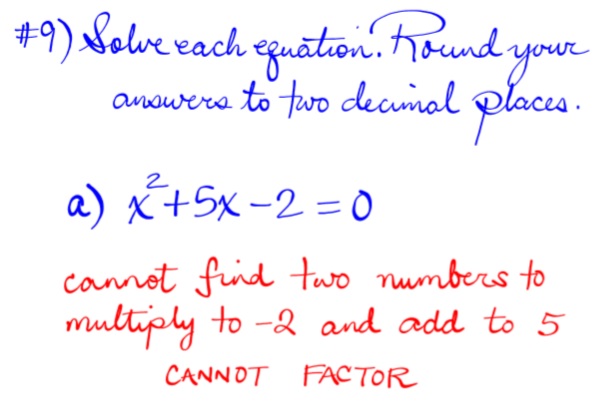 #9) Solve each equation. Round your
answers to two decimal places.
a) x²+5x-2=0
cannot find two numbers to
multiply to -2 and add to 5
CANNOT FACTOR